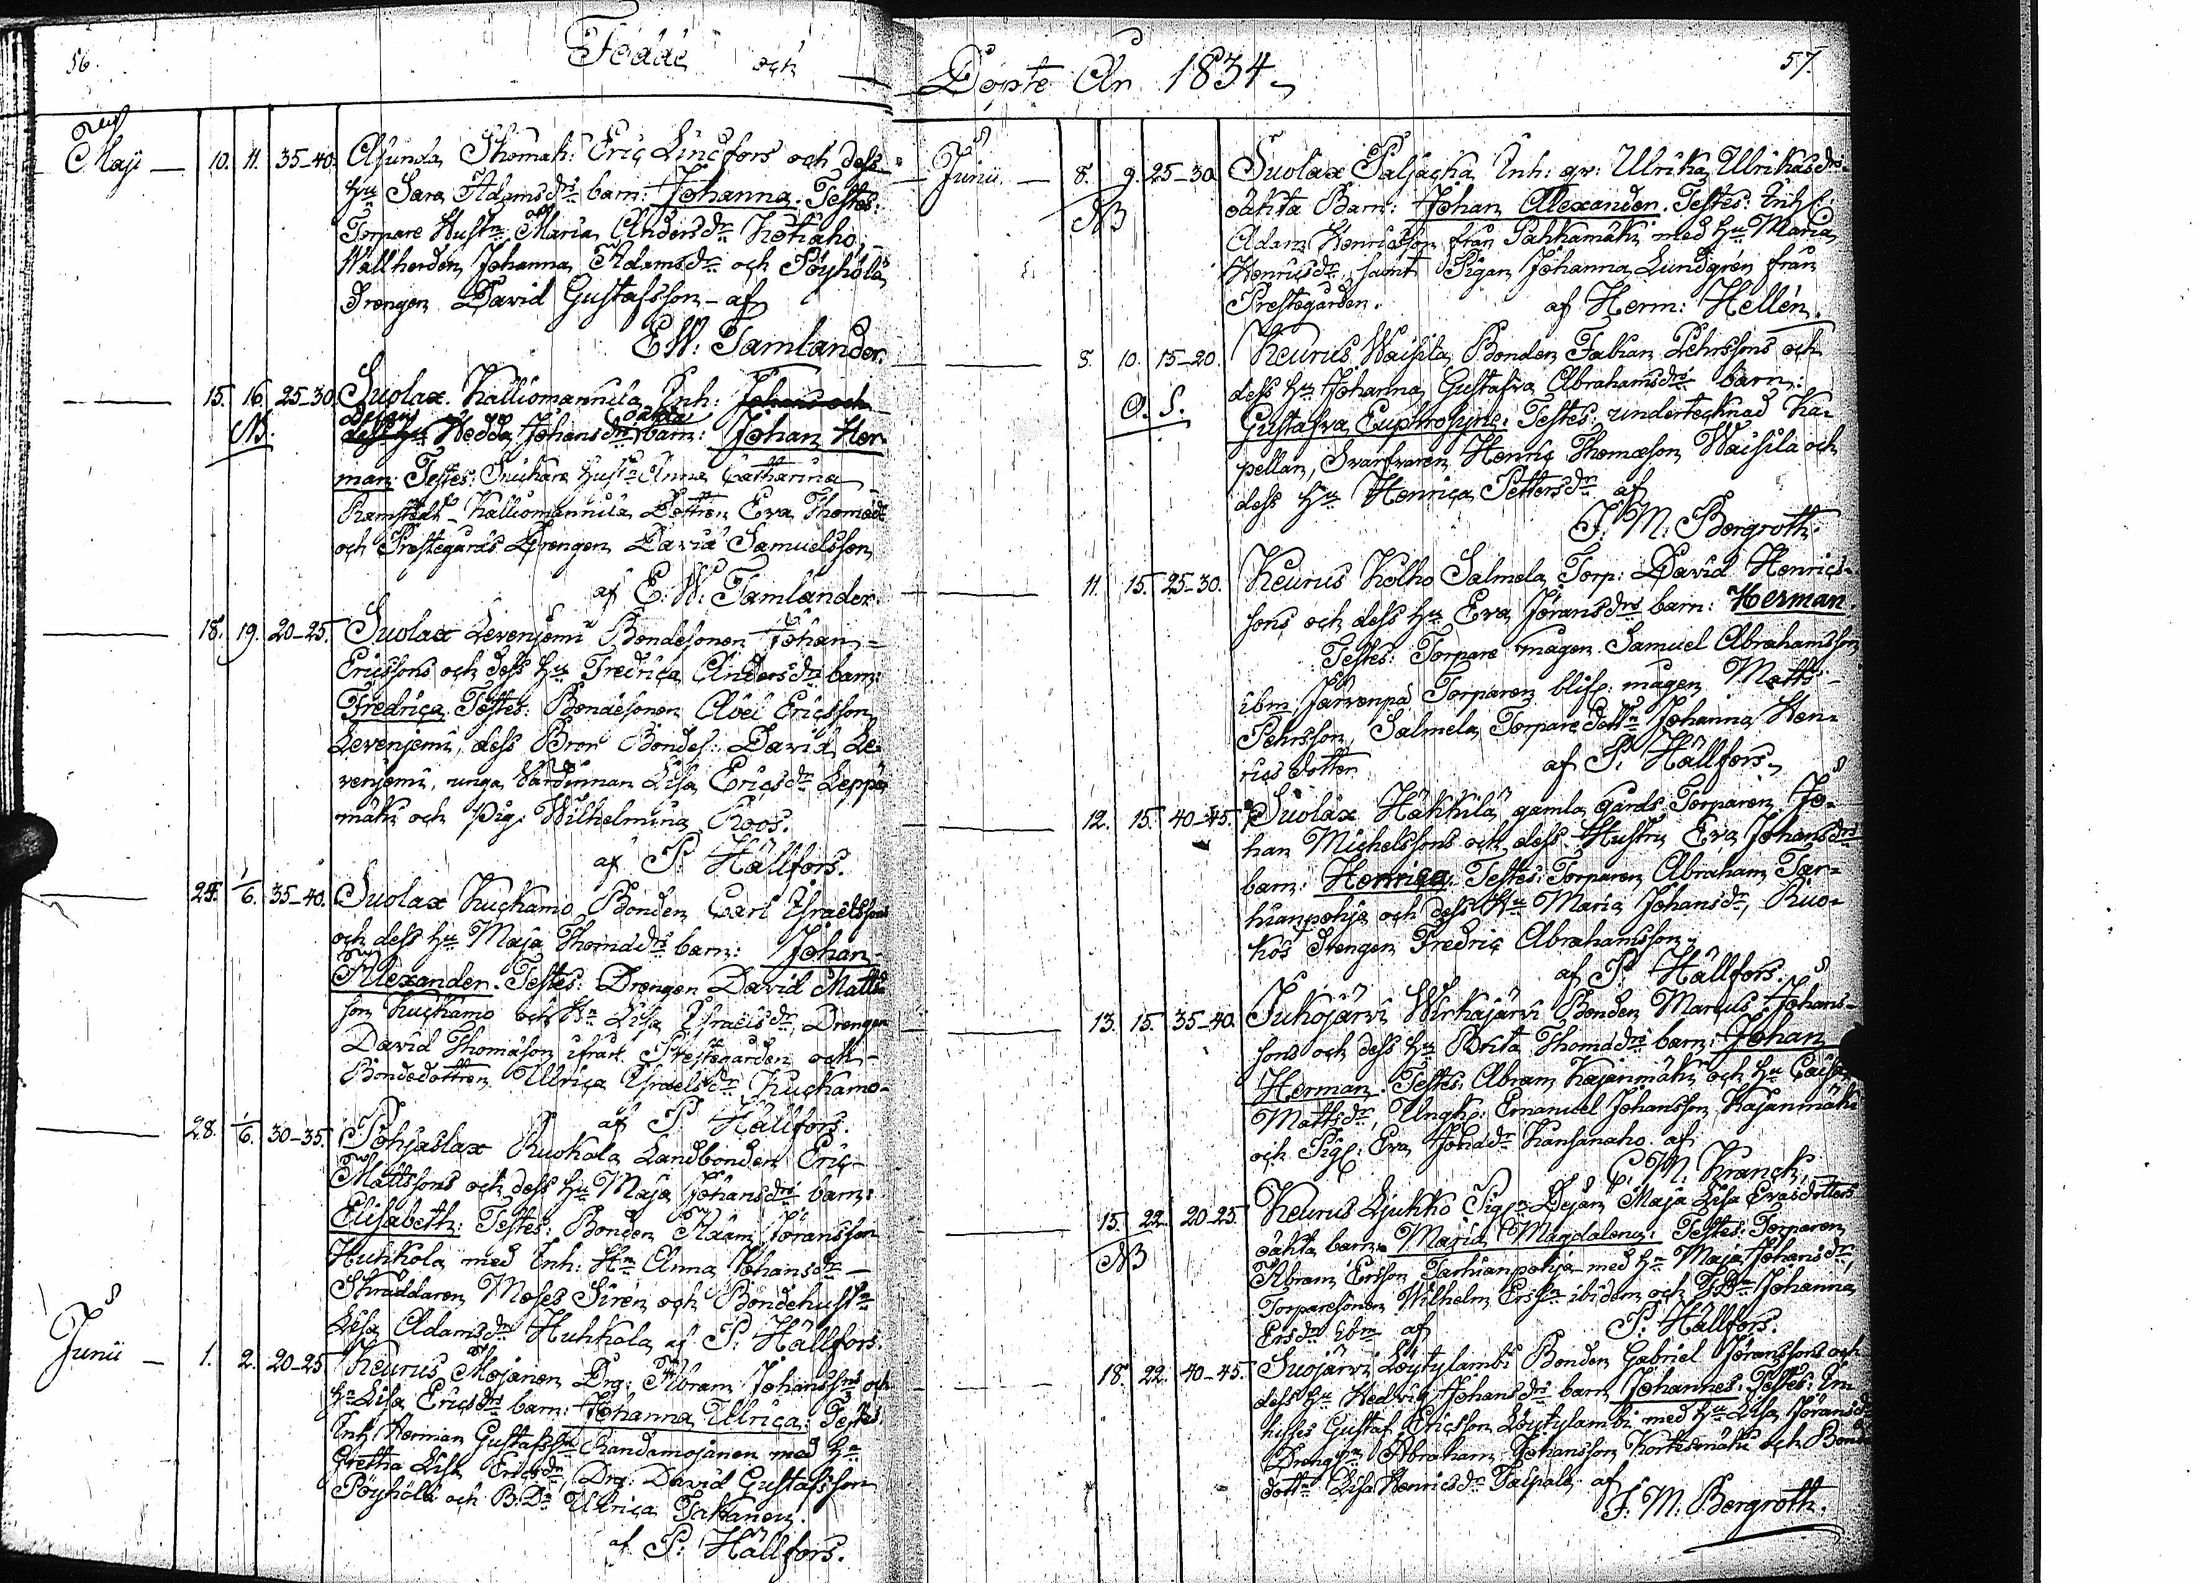 56.
Födde och
Maji — 10. 11. 35-40. Asunda Thomak: Eric Lincfors och dess
hu Sara Adamsdrs barn: Johanna. Testes:
Torpare Hustn Maria Andersdr Kotiaho,
Wallherden Johanna Adamsdr och Pöyhölä
Drengen David Gustafsson - af
E W: Tamlander.
15. 16. 25-30. Suolax Kalliomannila Enh: Johans och
NB. dess hu Hedda Johansdrs oäkta barn: Johan Her
man. Testes: Snickare Hustn Anna Catharina
Ramstedt - Kalliomannila Dottren Eva Thomædr
och Prestegårds Drengen David Samuelsson
af E: W: Tamlander.
18. 19. 20-25. Suolax Levenjemi Bondesonen Johan
Ericssons och dess hu Fredrica Andersdrs barn:
Fredrica. Testes: Bondesonen Abel Ericsson
Levenjemi, dess Bror Bondes: David Le-
venjemi, unga Värdinnan Lisa Ericsdr Leppä
mäki och Pig: Wilhelmina Roos.
af P: Hällfors.
24. 1/6. 35-40. Suolax Kuckamo Bonden Carl Israelssons
och dess hu Maja Thomædrs barn: Johan
Alexander. Testes: Drengen David Matts
son Kuckamo och Hn Lisa Israelsdr, Drengen
David Thomasson ifrån Prestegården och
Bondedottren Ulrica Israelsdr Kuckamo-
af P: Hällfors.
28. 1/6. 30-35. Pohjaslax Ruokola Landbonden Eric
Mattssons och dess hu Maja Johansdrs barn:
Elisabeth: Testes: Bonden Adam Jöransson
Huhkola med Enh: Hn Anna Johansdr —
Skräddaren Moses Siren och Bondehustn
Lisa Adamsdr Huhkola af P: Hällfors.
Junii — 1. 2. 20-25 Keurus Mojanen Drg: Abram Johanssons och
hn Lisa Ericsdrs barn: Johanna Ulrica: Testes:
Enh Herman Gustafssn Randamojanen med hn
Gretha Lisa Ericsdr, Drg: David Gustafsson
Pöyhölä och B:Dr Ullrica Takanen.
af P: Hällfors.
Döpte År 1834
57.
Junii — 8. 9. 25-30 Suolax Paljacka Enh: qv: Ulrika Ulrikasdrs
NB oäkta Barn: Johan Alexander. Testes: Enh:
Adam Henricsson från Pahkamäki med hu Maria
Henricsdr, samt Pigan Johanna Lundgrén från
Prestegården. af Herm: Hellén.
8. 10. 15-20. Keurus Waisila Bonden Fabian Pehrssons och
dess hu Johanna Gustafva Abrahamsdrs barn:
O. S. Gustafva Euphrosyne: Testes: undertecknad Ka-
pellan, Svarfvaren Henric Thomæson Waisila och
dess hu Henrica Pettersdr af
F. M: Bergroth.
11. 15. 25-30. Keurus Kolho Salmela Torp: David Henrics-
sons och dess hu Eva Jöransdrs barn: Herman.
Testes: Torpare mågen Samuel Abrahamsson
ibm, Järvenpä Torparen blifv: mågen Matts
Pehrsson, Salmela Torpare dottn Johanna Hen-
rics dotter af P: Hällfors.
12. 15. 40-45. Suolax Häkkilä gamla gårds Torparen Jo-
han Michelssons och dess Hustru Eva Johansdrs
barn: Henrica. Testes: Torparen Abraham Tar-
hianpohja och dess hu Maria Johansdr, Ruo-
kos Drengen Fredric Abrahamsson.
af P: Hällfors.
13. 15. 35-40. Pukojärvi Wirkajärvi Bonden Marcus Johans-
sons och dess hu Brita Thomædrs barn: Johan
Herman. Testes: Abram Kajanmäki och hu Caisa
Mattsdr, Ungk: Emanuel Johansson Kajanmäki
och Pig: Eva Johadr Kansanaho af
C. M. Kranck.
15. 22. 20-25. Keurus Ljukko Pign Dejan Maja Lisa Evasdotters
NB oäkta barn: Maria Magdalena: Testes: Torparen
Abram Ersson Tarhianpohja med hn Maja Johansdr,
Torparesonen Wilhelm Erssn ibidem och BDn Johanna
Ersdr ibm af P: Hällfors.
18. 22. 40-45. Suojärvi Löytylambi Bonden Gabriel Jöranssons och
dess hu Hedvig Johansdrs barn Johannes: Testes: In-
hises Gustaf Ericsson Löytylambi med hu Lisa Jöransdr
Drengn Abraham Johansson Kortesmäki och Bonde
dottn Lisa Henricsdr Taipale af
F. M: Bergroth.